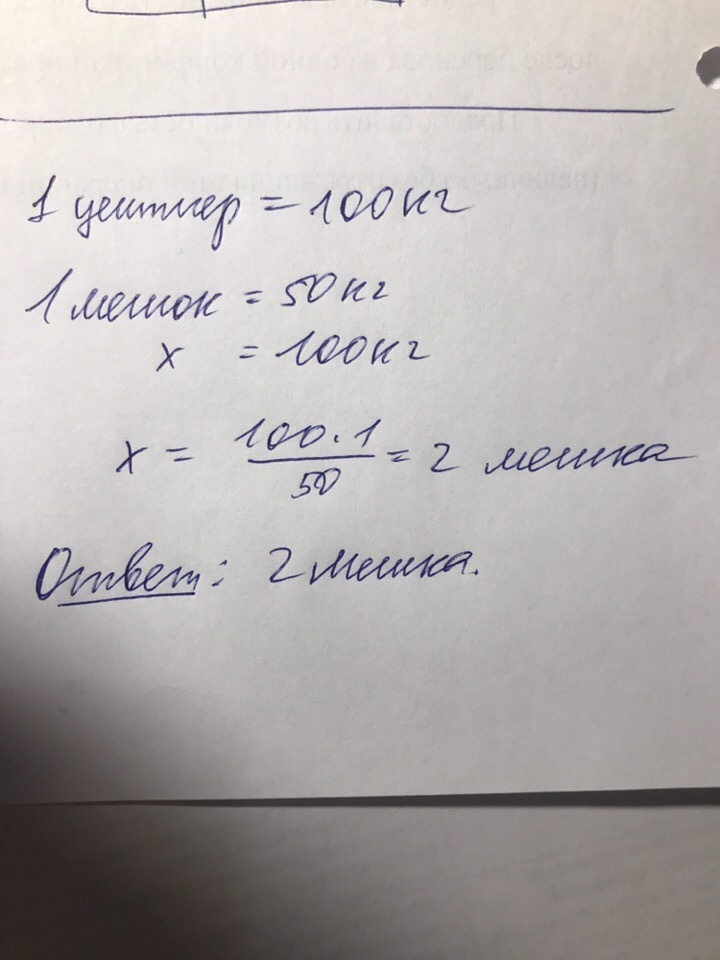 1 центнер = 100 кг
1 мешок = 50 кг
x = 100 кг
x = 100 · 1 / 50 = 2 мешка
Ответ: 2 мешка.